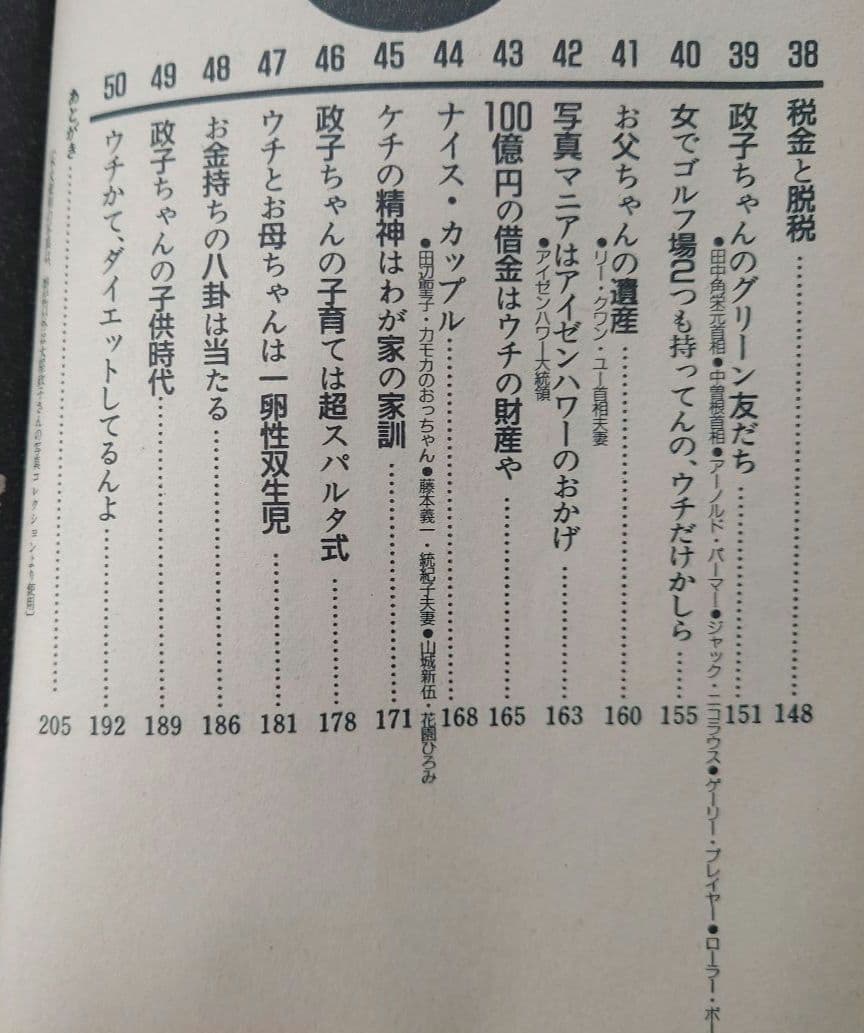 38 税金と脱税 148
39 政子ちゃんのグリーン友だち 151
●田中角栄元首相●中曽根首相●アーノルド・パーマー●ジャック・ニコラウス●ゲーリー・プレイヤー●ローラー・ボ
40 女でゴルフ場2つも持ってんの、ウチだけかしら 155
41 お父ちゃんの遺産 160
●リー・クワン・ユー首相夫妻
42 写真マニアはアイゼンハワーのおかげ 163
●アイゼンハワー大統領
43 100億円の借金はウチの財産や 165
44 ナイス・カップル 168
●田辺聖子・カモカのおっちゃん●藤本義一・統紀子夫妻●山城新伍・花園ひろみ
45 ケチの精神はわが家の家訓 171
46 政子ちゃんの子育ては超スパルタ式 178
47 ウチとお母ちゃんは一卵性双生児 181
48 お金持ちの八卦は当たる 186
49 政子ちゃんの子供時代 189
50 ウチかて、ダイエットしてるんよ 192
あとがき 205
さんの写真コレクションより使用）